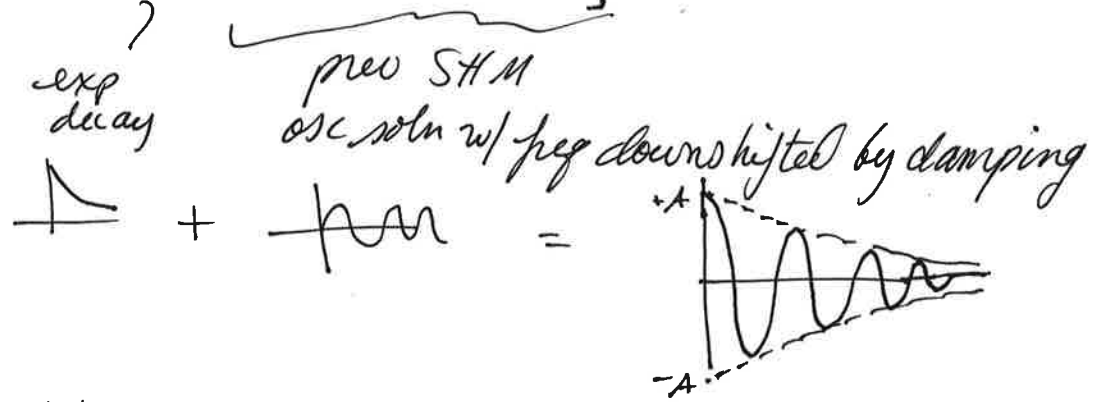 exp
decay
prev SHM
osc soln w/ freq downshifted by damping
+A
+
=
-A